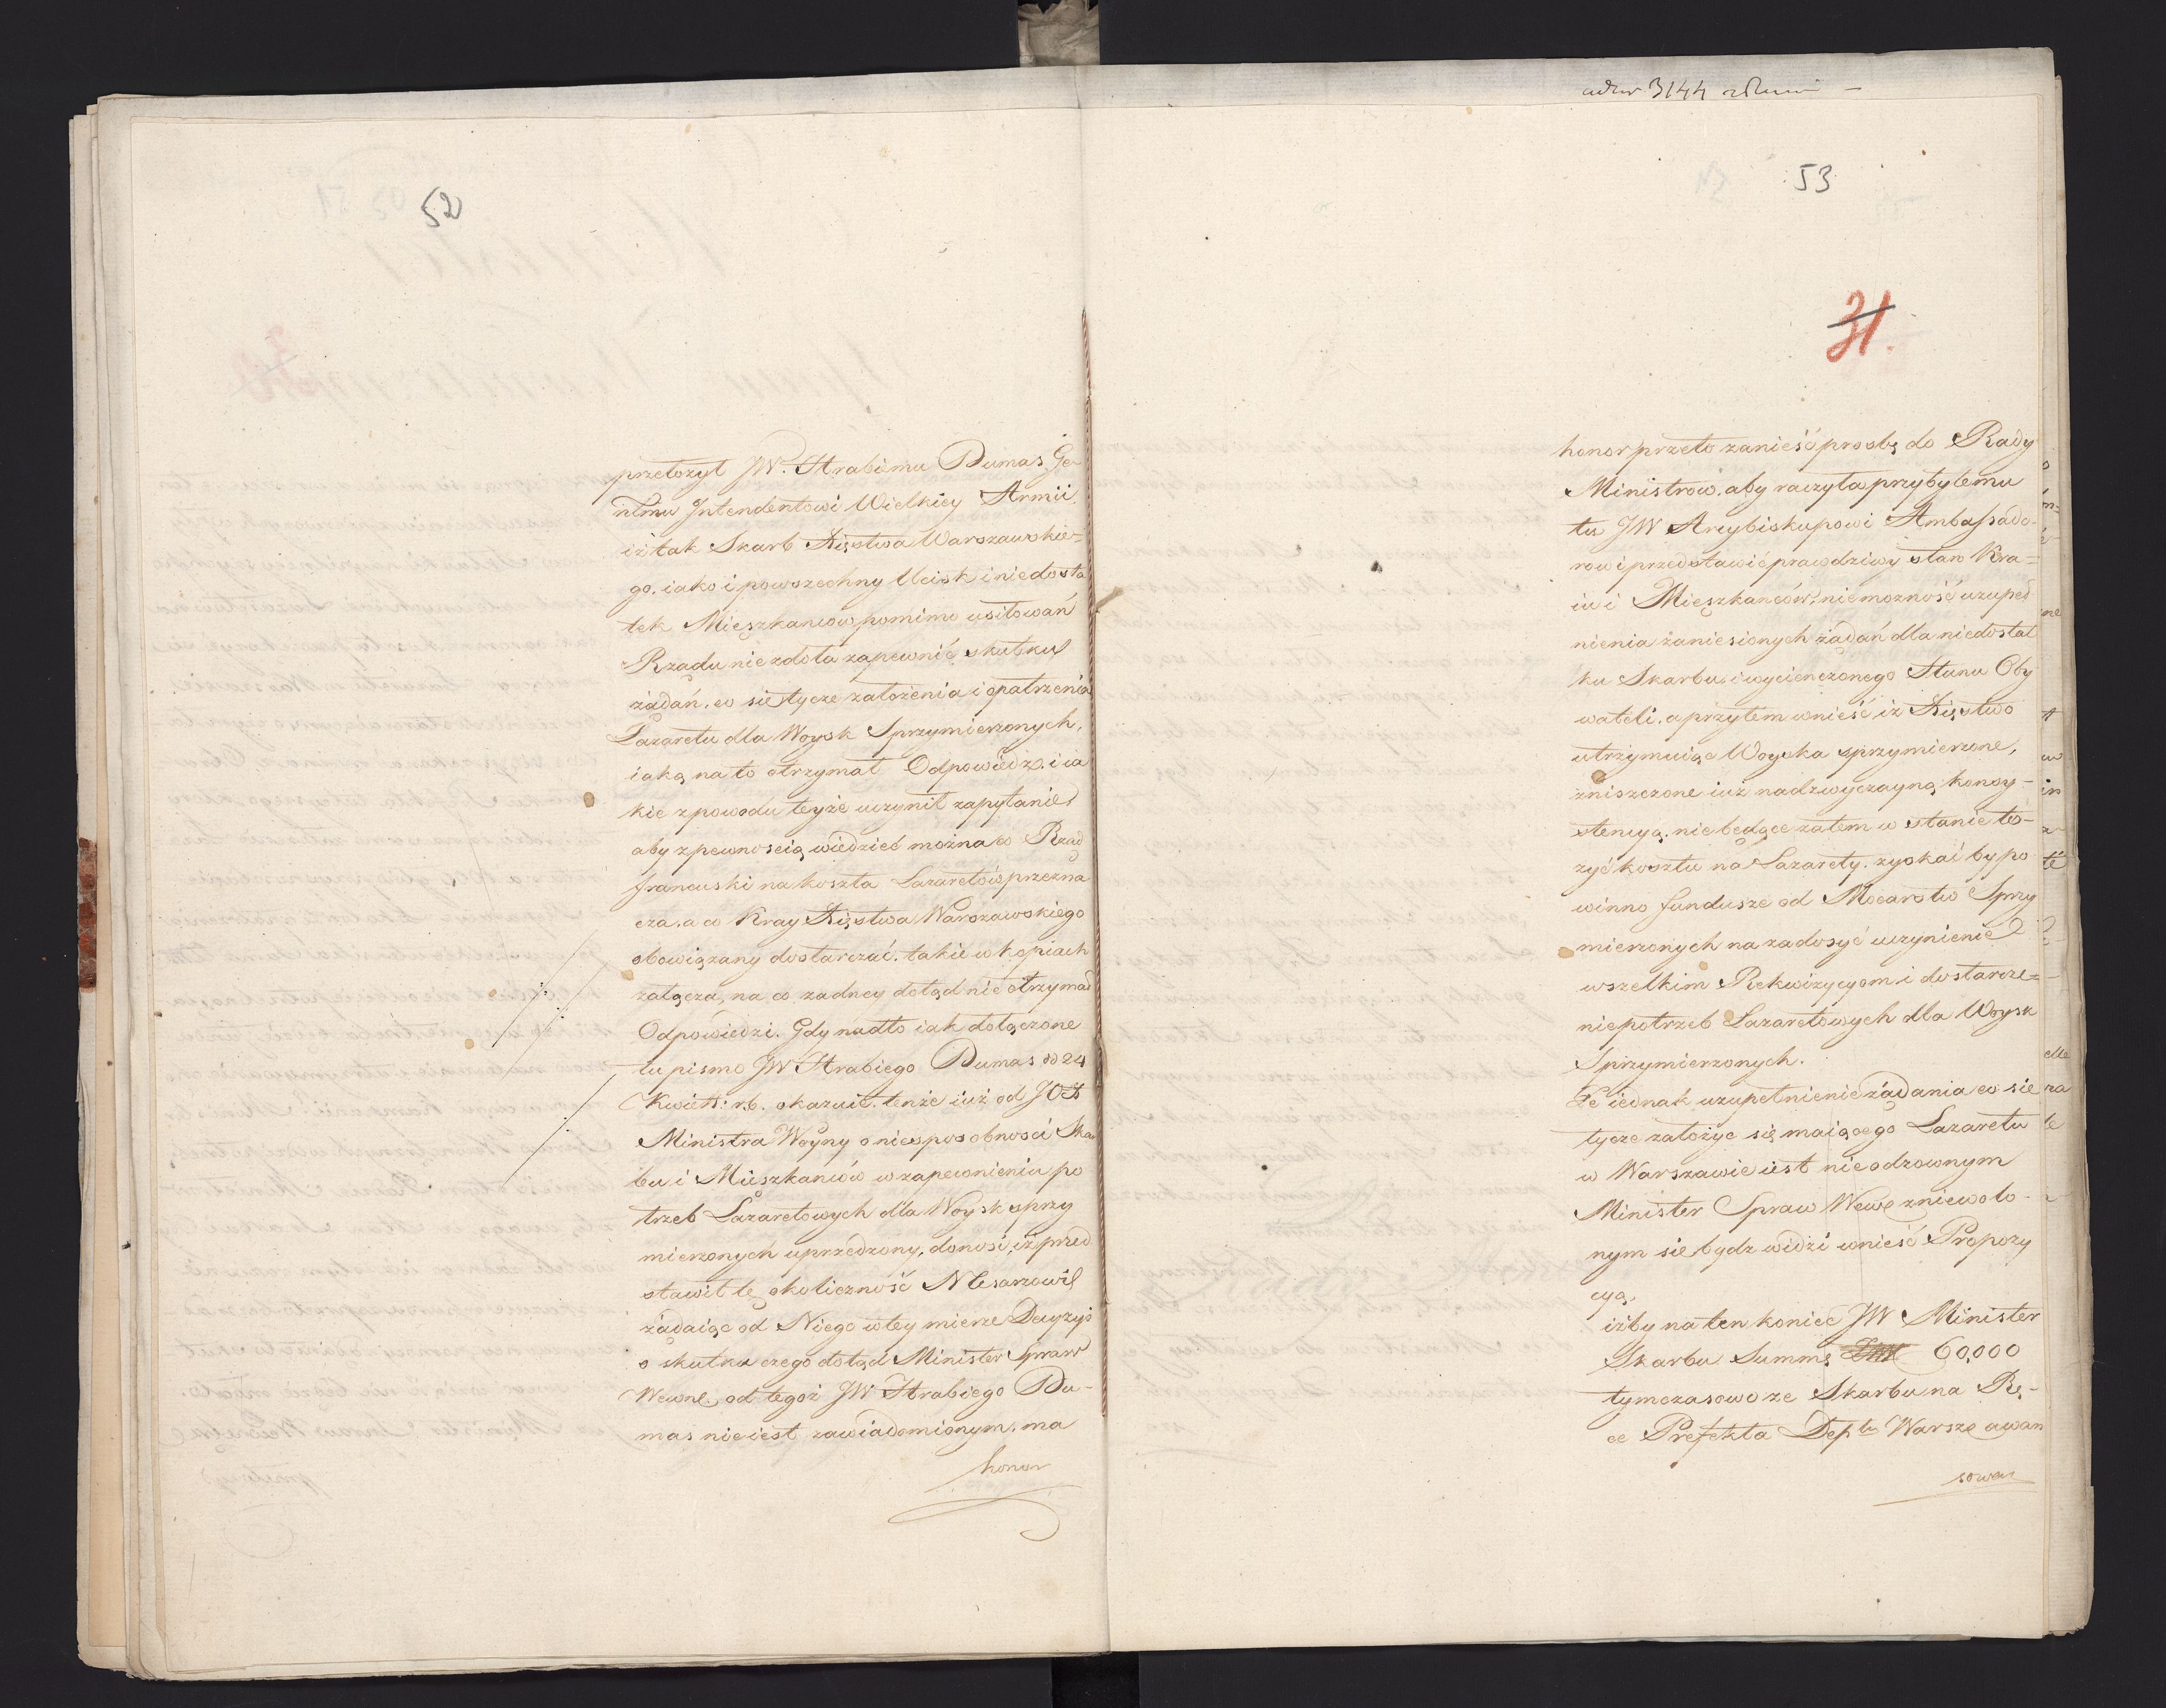 52
przełożył JW. Hrabiemu Dumas Ge
nłmu Intendentowi Wielkiey Armii
iż tak Skarb Xięstwa Warszawskie=
go, iako i powszechny Ucisk i niedosta
tek Mieszkancow pomimo usiłowań
Rządu niezdoła zapewnić skutku
żądań, co się tycze założenia i opatrzenia
Lazaretu dla Woysk Sprzymierzonych,
iaką na to otrzymał Odpowiedź, i ia
kie z powodu teyże uczynił zapytanie
aby z pewnoscią wiedzieć można co Rząd
francuski na koszta Lazaretów przezna
cza, a co Kray Xięstwa Warszawskiego
obowiązany dostarczać, takie w kopiach
załącza, na co żadney dotąd nie otrzymał
Odpowiedzi. Gdy nadto iak dołączone
tu pismo JW Hrabiego Dumas dd 24
Kwietn: r.b. okazuie, tenże iuż od JO
Ministra Woyny o niesposobnosci Skar
bu i Mieszkanców w zapewnieniu po
trzeb Lazaretowych dla Woysk sprzy
mierzonych uprzedzony, donosi, iż przed
stawił tę okoliczność N Cesarzowi
żądaiąc od Niego w tey mierze Decyzyi
o skutku czego dotąd Minister Spraw
Wewnę. od tegoż JW Hrabiego Du-
mas nie iest zawiadomionym, ma
honor
3144
53
31.
honor przeto zanieść prosbę do Rady
Ministrow, aby raczyła przybyłemu
tu JW Arcybiskupowi Ambassado-
rowi przedstawić prawdziwy stan Kra=
iu i Mieszkanców, niemożność uzupeł
nienia zaniesionych żądań dla niedostat
ku Skarbu, i wycienczonego Stanu Oby
wateli, a przytem wnieść iż Xięstwo
utrzymuiąc Woyska sprzymierzone,
zniszczone iuż nadzwyczayną konsy-
stencyą, nie będące zatem w stanie ło-
żyć kosztu na Lazarety, zyskać by po
winno fundusze od Mocarstw Sprzy
mierzonych na zadosyć uczynienie
wszelkim Rekwizycyom i dostarcze=
nie potrzeb Lazaretowych dla Woysk
Sprzymierzonych.
Że iednak uzupełnienie żądania co się
tycze założyć się maiącego Lazaretu
w Warszawie iest nieodzownym
Minister Spraw Wewnę zniewolo-
nym się bydz widzi wnieść Propozy
cyą,
iżby na ten koniec JW Minister
Skarbu Summę 60,000
tymczasowo ze Skarbu na Rę-
ce Prefekta Depta Warsze awan
sował